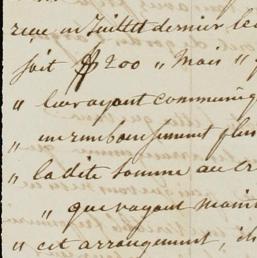 reçu in Juillet dernier le
soit $200 " Mais "
" leur ayant communiq
" un remboursement plus
" la dite somme au cr
" que n'ayant main
" cet arrangement, il